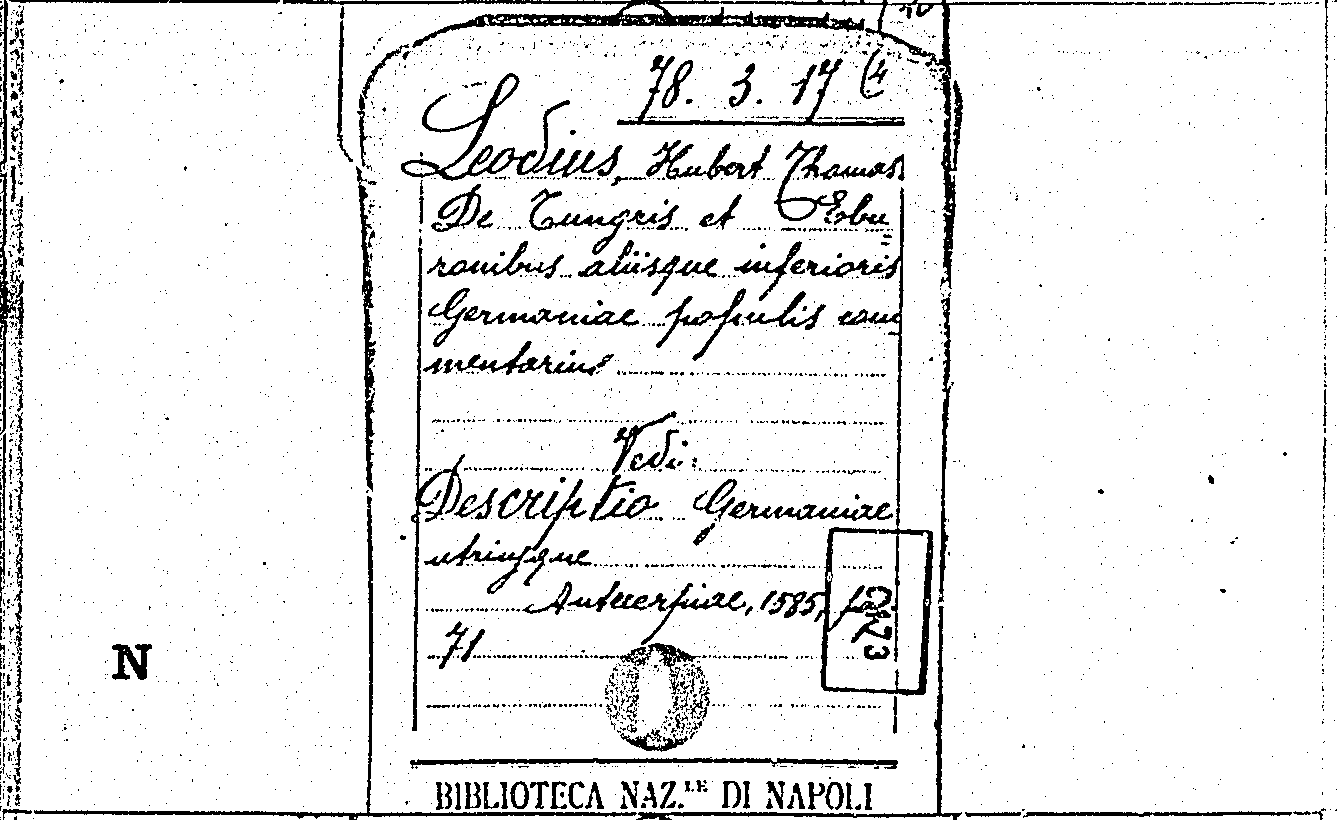 78. 3. 17 (4
Leodius, Hubert Thomas.
De Tungris et Ebu=
ronibus aliisque inferioris
Germaniae populis com=
mentarius
Vedi:
Descriptio Germaniae
utriusque
Antuerpiae, 1585,
71
N
BIBLIOTECA NAZ.LE DI NAPOLI